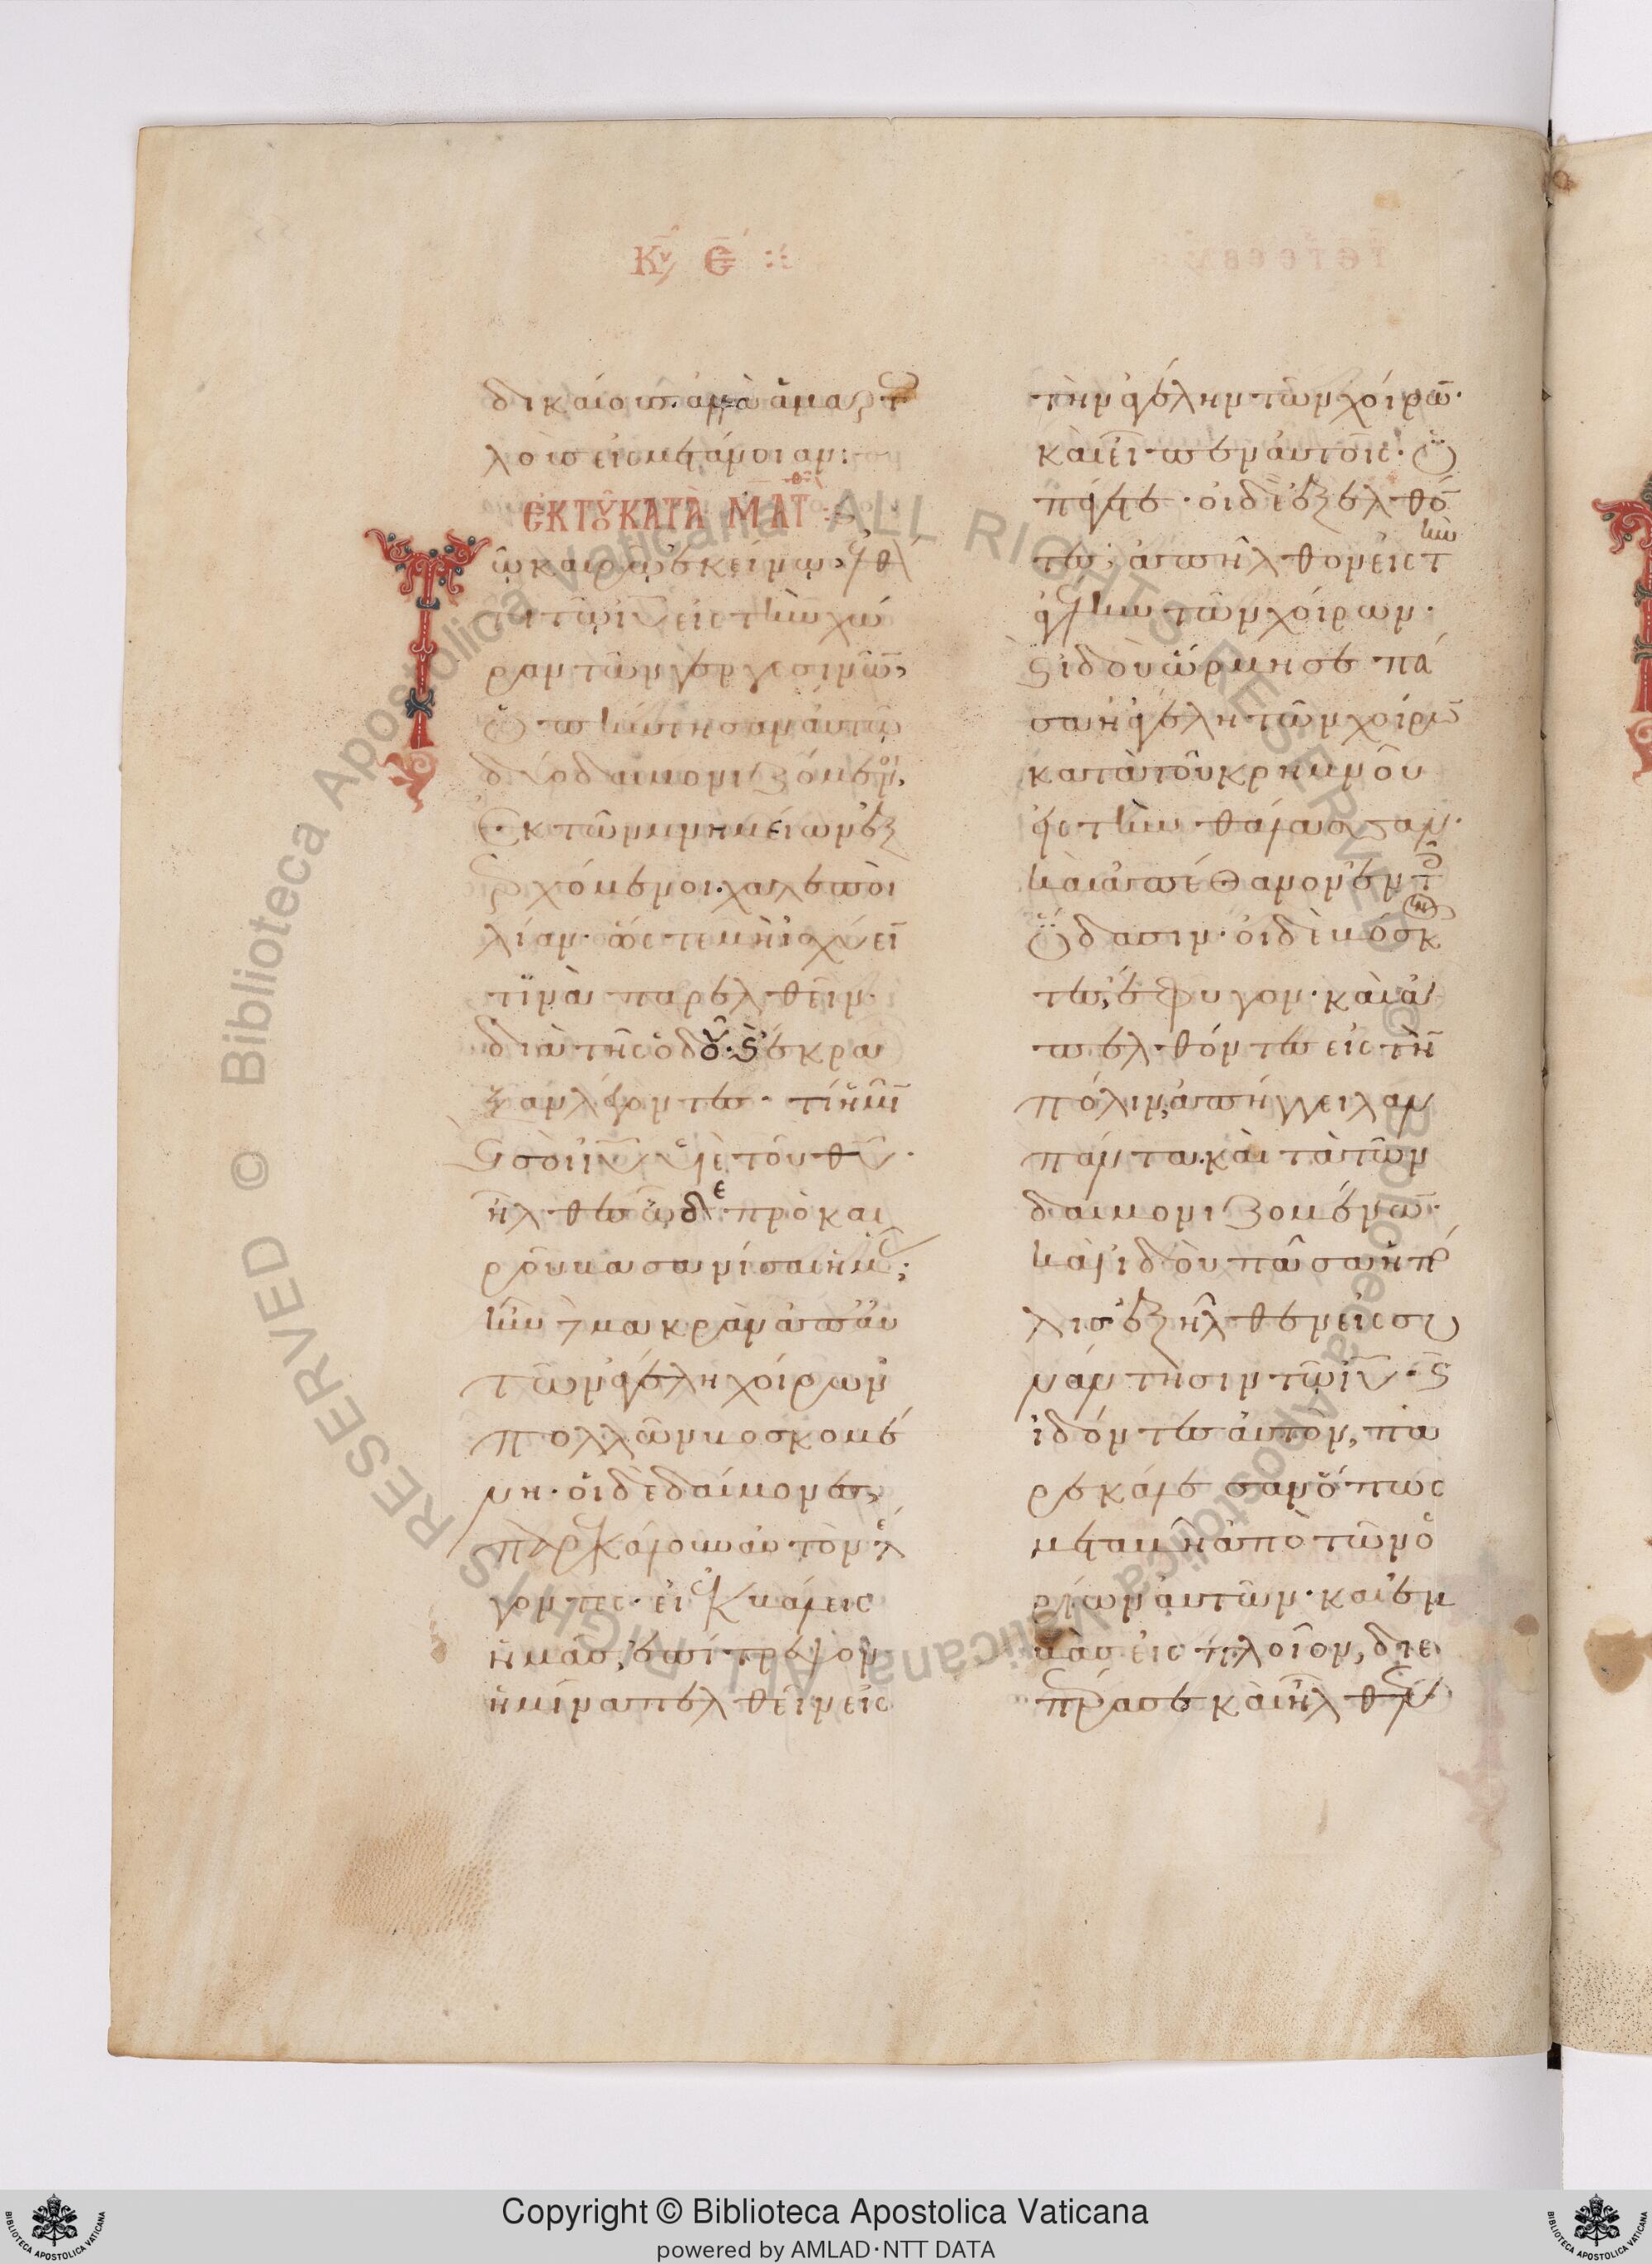 Κυ Ε
δικαίους ἀλλὰ ἁμαρτω
λοὺς εἰς μετάνοιαν:
ἐκ τοῦ κατὰ Ματθ
Τῷ καιρῷ ἐκείνῳ, ἐλθόν
τι τῷ ιυ εἰς τὴν χώ
ραν τῶν γεργεσινῶν,
ὑπήντησαν αὐτῷ
δύο δαιμονιζόμενοι,
ἐκ τῶν μνημείων ἐξ
ερχόμενοι. χαλεποὶ
λίαν. ὥστε μὴ ἰσχύειν
τινὰ παρελθεῖν
διὰ τῆς ὁδοῦ. καὶ ἔκρα
ξαν λέγοντες. τί ἡμῖν
καὶ σοὶ ιυ υἱὲ τοῦ θυ.
ἦλθες ὧδε πρὸ και
ροῦ βασανίσαι ἡμᾶς;
ἦν δὲ μακρὰν ἀπ' αὐ
τῶν ἀγέλη χοίρων
πολλῶν βοσκομέ
νη. οἱ δὲ δαίμονες,
παρεκάλουν αὐτὸν λέ
γοντες. εἰ ἐκβάλεις
ἡμᾶς, ἐπίτρεψον
ἡμῖν ἀπελθεῖν εἰς
τὴν ἀγέλην τῶν χοίρων.
καὶ εἶπεν αὐτοῖς. ὑ
πάγετε. οἱ δὲ ἐξελθόν
τες, ἀπῆλθον εἰς τὴν
ἀγέλην τῶν χοίρων.
καὶ ἰδοὺ ὥρμησε πᾶ
σα ἡ ἀγέλη τῶν χοίρων
κατὰ τοῦ κρημνοῦ
εἰς τὴν θάλασσαν.
καὶ ἀπέθανον ἐν τοῖς
ὕδασιν. οἱ δὲ βόσκον
τες, ἔφυγον. καὶ ἀ
πελθόντες εἰς τὴν
πόλιν, ἀπήγγειλαν
πάντα. καὶ τὰ τῶν
δαιμονιζομένων.
καὶ ἰδοὺ πᾶσα ἡ πό
λις ἐξῆλθεν εἰς συ
νάντησιν τῷ ιυ. καὶ
ἰδόντες αὐτὸν, πα
ρεκάλεσαν ὅπως
μεταβῇ ἀπὸ τῶν ὁ
ρίων αὐτῶν. καὶ ἐμ
βὰς εἰς πλοῖον, διε
πέρασε καὶ ἦλθεν
Copyright © Biblioteca Apostolica Vaticana
powered by AMLAD·NTT DATA